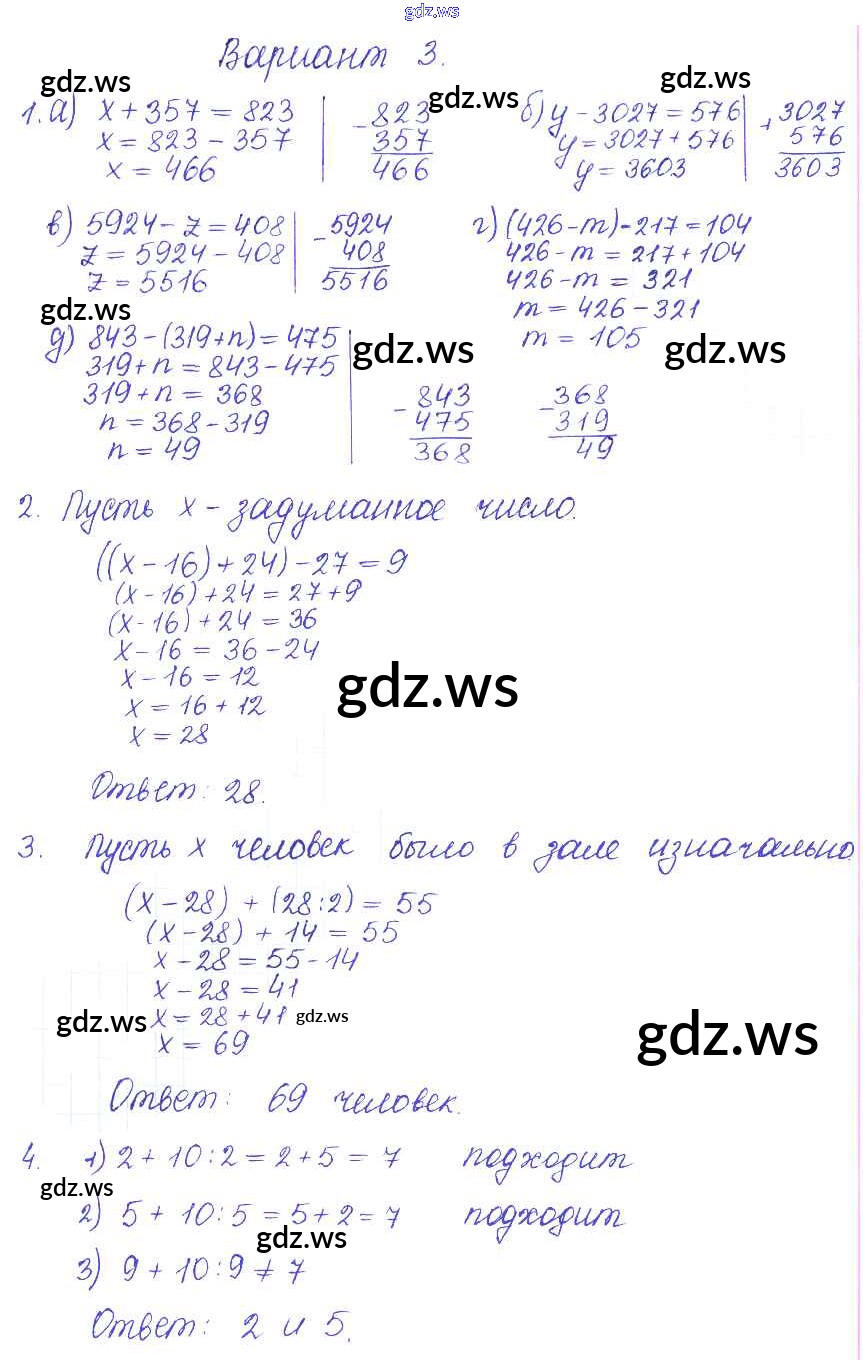 gdz.ws
Вариант 3.
gdz.ws
gdz.ws
gdz.ws
1. а) x + 357 = 823
x = 823 - 357
x = 466
- 823
357
466
б) y - 3027 = 576
y = 3027 + 576
y = 3603
+ 3027
576
3603
в) 5924 - z = 408
z = 5924 - 408
z = 5516
- 5924
408
5516
г) (426 - m) - 217 = 104
426 - m = 217 + 104
426 - m = 321
m = 426 - 321
m = 105
gdz.ws
д) 843 - (319 + n) = 475
319 + n = 843 - 475
319 + n = 368
n = 368 - 319
n = 49
gdz.ws
gdz.ws
- 843
475
368
- 368
319
49
2. Пусть x - задуманное число.
((x - 16) + 24) - 27 = 9
(x - 16) + 24 = 27 + 9
(x - 16) + 24 = 36
x - 16 = 36 - 24
x - 16 = 12
x = 16 + 12
x = 28
gdz.ws
Ответ: 28.
3. Пусть x человек было в зале изначально.
(x - 28) + (28 : 2) = 55
(x - 28) + 14 = 55
x - 28 = 55 - 14
x - 28 = 41
gdz.ws x = 28 + 41 gdz.ws
x = 69
gdz.ws
Ответ: 69 человек.
4. 1) 2 + 10 : 2 = 2 + 5 = 7 подходит
gdz.ws
2) 5 + 10 : 5 = 5 + 2 = 7 подходит
gdz.ws
3) 9 + 10 : 9 ≠ 7
Ответ: 2 и 5.